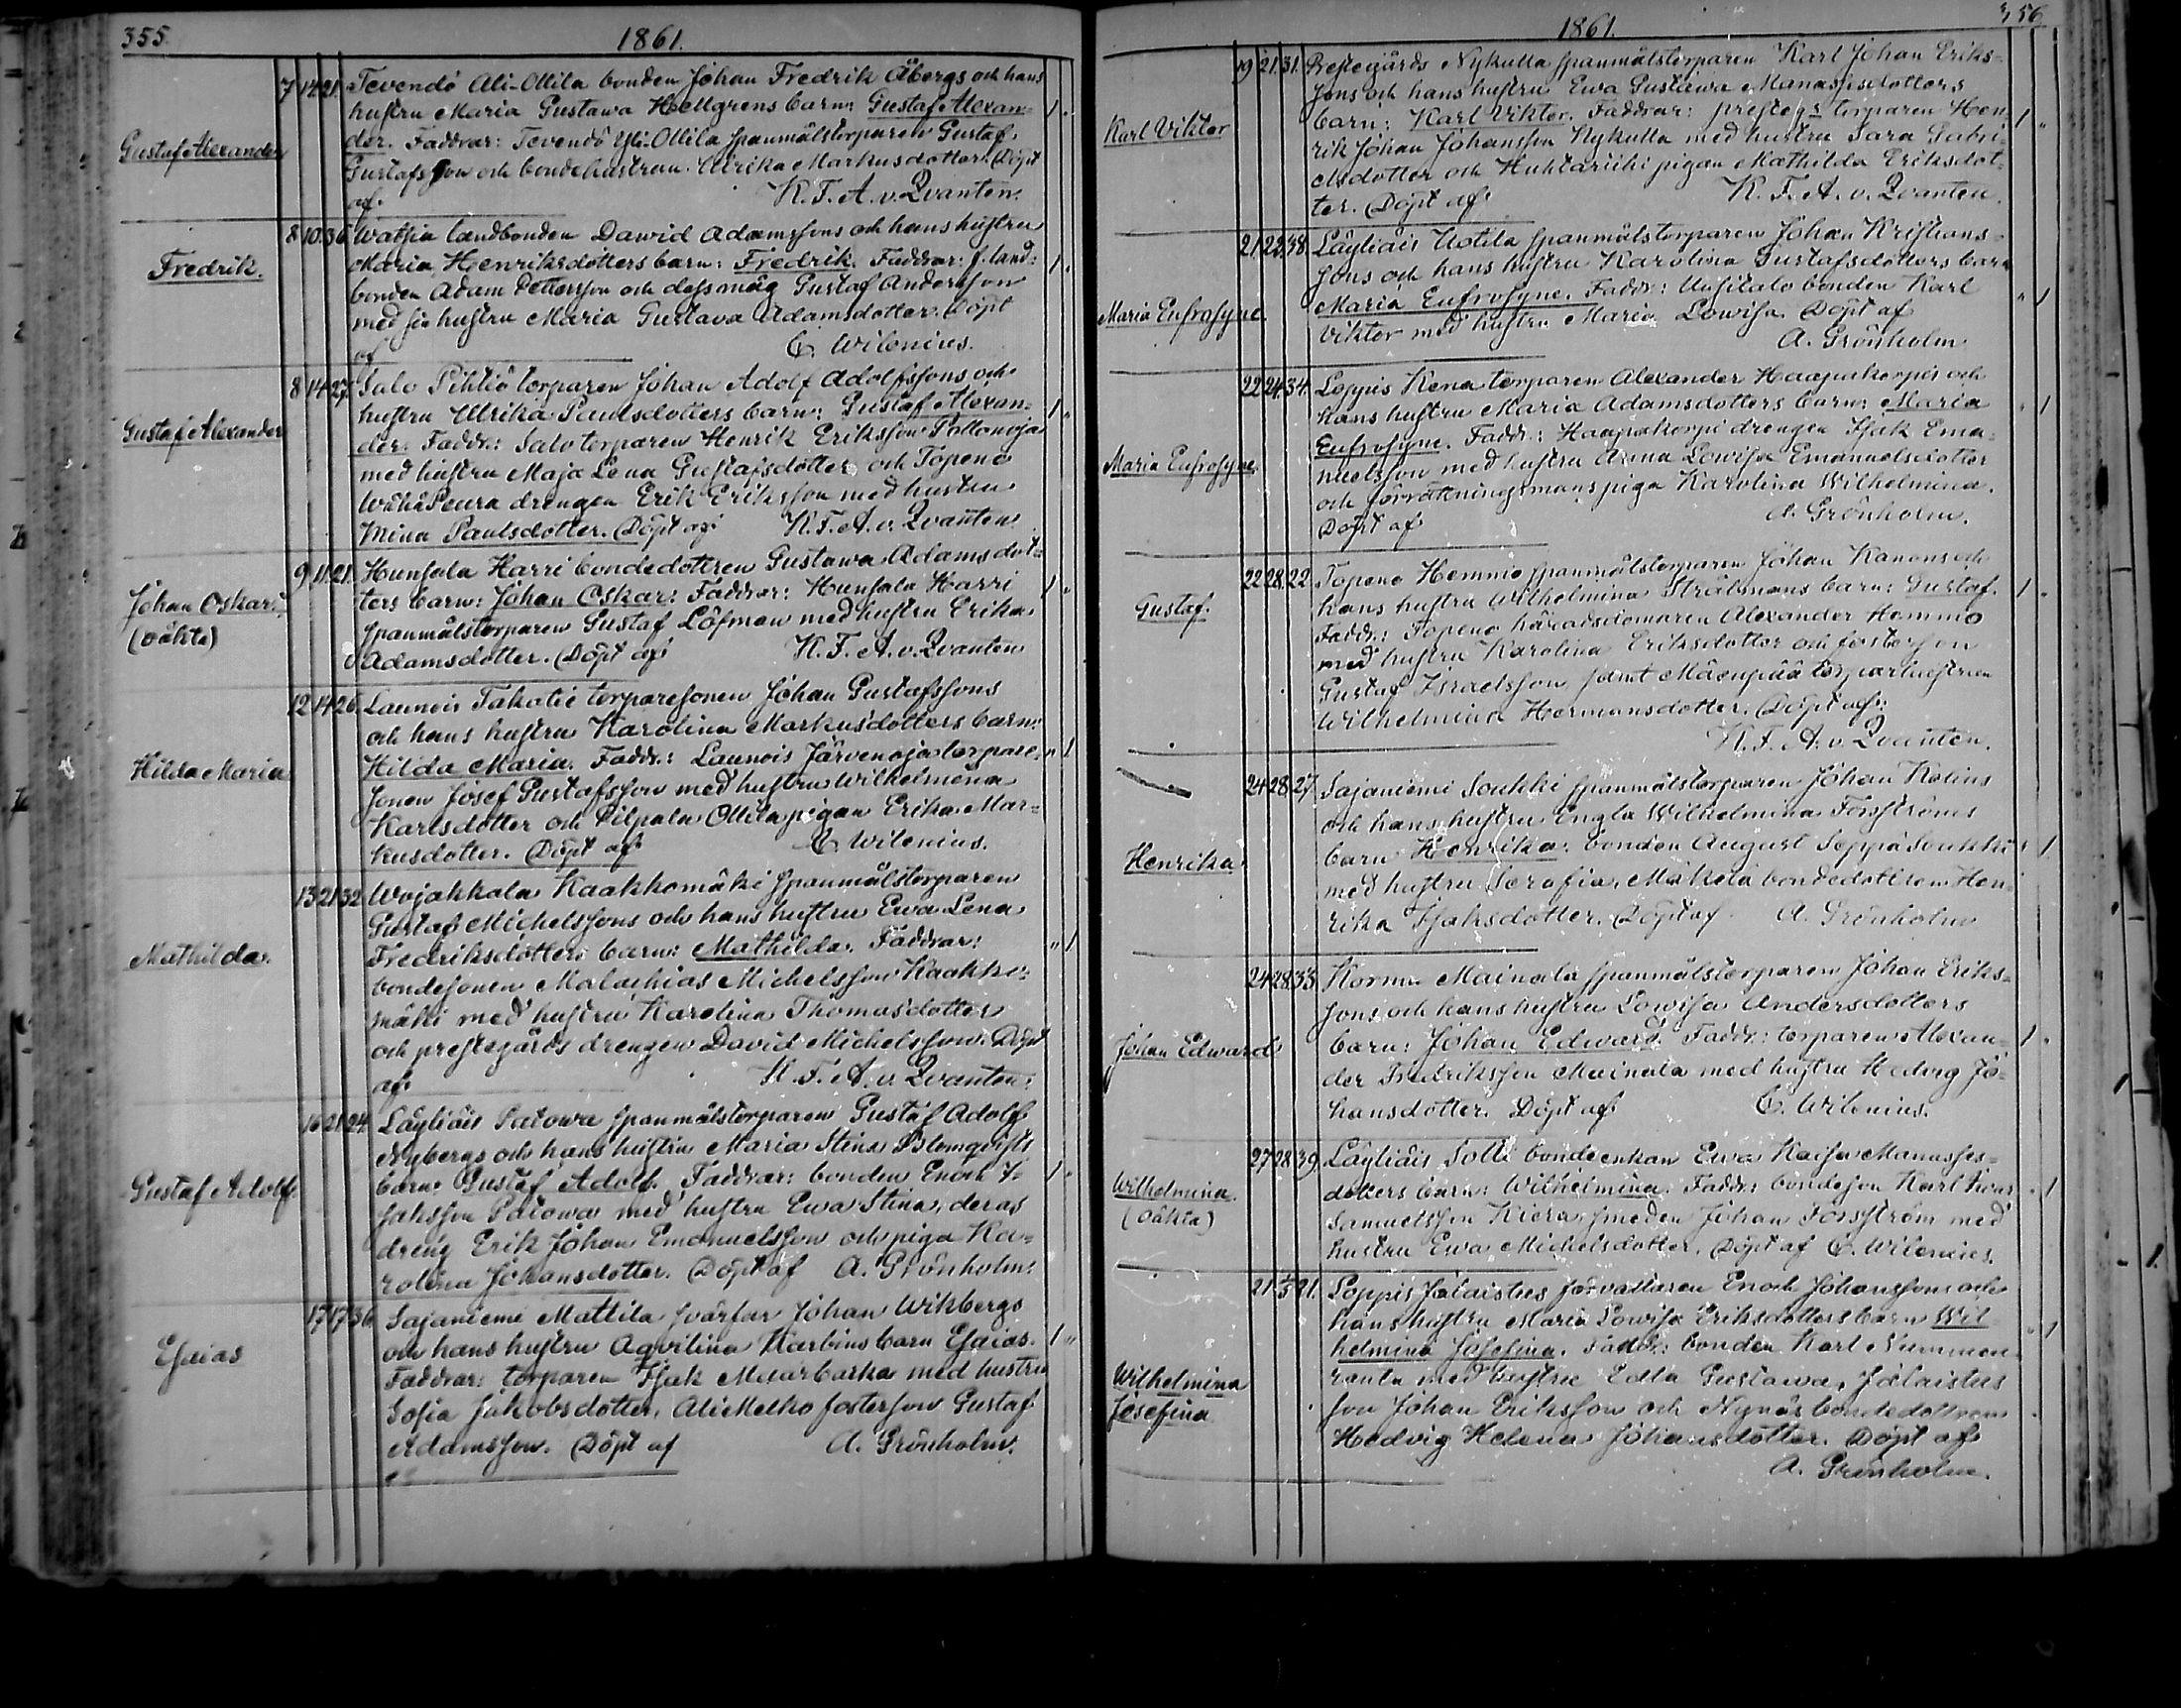 355.
1861.
Gustaf Alexander
7 14 21. Tevendö Ali-Ollila bonden Johan Fredrik Åbergs och hans
hustru Maria Gustawa Hellgrens barn: Gustaf Alexan=
der. Faddrar: Tevendö Yli-Ollila spanmålstorparen Gustaf
Gustafsson och bondehustrun Ulrika Markusdotter. Döpt
af K. F. A. v. Qvanten.
Fredrik.
8 10 36. Watsia landbonden Dawid Adamssons och hans hustru
Maria Henriksdotters barn: Fredrik. Faddrar: f. land=
bonden Adam Pettersson och dess måg Gustaf Andersson
med sin hustru Maria Gustava Adamsdotter. Döpt
af C. Wilenius.
Gustaf Alexander
8 14 27. Salo Pihtiö torparen Johan Adolf Adolfssons och
hustru Ulrika Paulsdotters barn: Gustaf Alexan=
der. Faddr.: Salo torparen Henrik Eriksson
med hustru Maja Lena Gustafsdotter och Topeno
WähäSeura drengen Erik Eriksson med hustru
Mina Paulsdotter. Döpt af K. F. A. v. Qvanten
Johan Oskar.
(oäkta)
9 11 21. Hunsala Harri bondedottren Gustawa Adamsdot=
ters barn: Johan Oskar: Faddrar: Hunsala Harri
spanmålstorparen Gustaf Löfman med hustru Erika
Adamsdotter. Döpt af K. F. A. v. Qvanten
Hilda Maria
12 14 26. Launois Takatie torparesonen Johan Gustafssons
och hans hustru Karolina Markusdotters barn:
Hilda Maria. Faddr.: Launois Järvenoja torpare=
sonen Josef Gustafsson med hustru Wilhelmina
Karlsdotter och Pilpala Ollila pigan Erika Mar=
kusdotter. Döpt af C. Wilenius.
Mathilda.
13 21 32. Wojakkala Kaakkomäki spanmålstorparen
Gustaf Michelssons och hans hustru Ewa Lena
Fredriksdotters barn: Mathilda. Faddrar:
bondesonen Malachias Michelsson Kaakko=
mäki med hustru Karolina Thomasdotter
och prestegårds drengen David Michelsson. Döpt
af K. F. A. v. Qvanten.
Gustaf Adolf.
16 21 24. Läyliäis Patowa spanmålstorparen Gustaf Adolf
Nybergs och hans hustru Maria Stina Blomqvists
barn: Gustaf Adolf. Faddrar: bonden Enoch I=
saksson Patowa med hustru Ewa Stina, deras
dreng Erik Johan Emanuelsson och piga Ka=
rolina Johansdotter. Döpt af A. Grönholm.
Esaias
17 17 36. Sajaniemi Mattila svärfar Johan Wikbergs
och hans hustru Aqvilina Karbins barn Esaias.
Faddrar: torparen Isak med hustru
Sofia Jakobsdotter, AliMelko fosterson Gustaf
Adamsson. Döpt af A. Grönholm.
1861.
356
Karl Viktor
19 21 31. Prestegårds Nykulla spanmålstorparen Karl Johan Eriks=
sons och hans hustru Ewa Gustawa Manassesdotters
barn: Karl Viktor. Faddrar: prestegs torparen Hen=
rik Johan Johansson Nykulla med hustru Sara Gabri=
elsdotter och Huhtariihi pigan Mathilda Eriksdot=
ter. Döpt af K. F. A. v. Qvanten.
Maria Eufrosyne.
21 22 38. Läyliäis Uotila spanmålstorparen Johan Kristians=
sons och hans hustru Karolina Gustafsdotters barn
Maria Eufrosyne. Faddr: Uusitalo bonden Karl
Viktor med hustru Maria Lowisa. Döpt af
A. Grönholm
Maria Eufrosyne.
22 24 34. Loppis Kena torparen Alexander Haapakorpis och
hans hustru Maria Adamsdotters barn: Maria
Eufrosyne. Faddr.: Haapakorpi drengen Isak Ema=
nuelsson med hustru Anna Lowisa Emanuelsdotter
och förrättningsmans piga Karolina Wilhelmina.
Döpt af A. Grönholm.
Gustaf.
22 28 22. Topeno Hemmio spanmålstorparen Johan Kanons och
hans hustru Wilhelmina Strålmans barn: Gustaf.
Faddr.: Topeno häradsdomaren Alexander Hemmio
med hustru Karolina Eriksdotter och fosterson
Gustaf Israelsson samt Mäenpää torparhustrun
Wilhelmina Hermansdotter. Döpt af:
K. F. A. v. Qvanten.
Henrika.
24 28 27. Sajaniemi Soukki spanmålstorparen Johan Kolins
och hans hustru Engla Wilhelmina Forsströms
barn Henrika. bonden August Seppä Soukki
med hustru Serafia, Mikola bondedottren Hen=
rika Isaksdotter. Döpt af A. Grönholm
Johan Edward
24 28 33. Kormu Mainala spanmålstorparen Johan Eriks=
sons och hans hustru Lowisa Andersdotters
barn: Johan Edward. Faddr.: torparen Alexan=
der Fredriksson Mainala med hustru Hedvig Jo=
hansdotter. Döpt af C. Wilenius.
Wilhelmina.
(oäkta)
27 28 39. Läyliäis Solli bondeenkan Ewa Kaisa Manasses=
dotters barn: Wilhelmina. Faddr: bondeson Karl Ivar
Samuelsson Kiera, smeden Johan Forsström med
hustru Ewa Michelsdotter. Döpt af C. Wilenius.
Wilhelmina
Josefina
21 1/5 21. Loppis Jalaistus förvaltaren Enoch Johanssons och
hans hustru Maria Lowisa Eriksdotters barn Wil=
helmina Josefina. Faddr: bonden Karl Nummen=
ranta med hustru Edla Gustawa, Jalaistus
son Johan Eriksson och Nynäs bondedottren
Hedvig Helena Johansdotter. Döpt af
A. Grönholm.